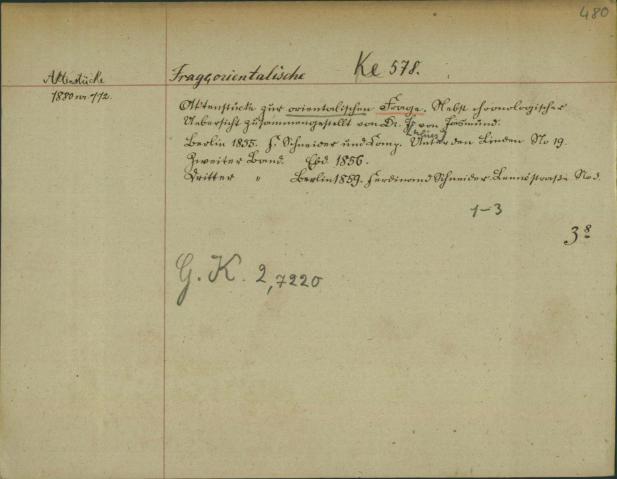 480
Aktenstücke
1880 nr 412.
Frage, orientalische
Ke 578.
Aktenstücke zur orientalischen Frage. Nebst chronologischer
Uebersicht zusammengestellt von Dr. J. von Jasmund.
Berlin 1855. F. Schneider und Comp. Unter den Linden No 19.
Zweiter Band. Ebd. 1856.
Dritter " Berlin 1859. Ferdinand Schneider. Lennéstraße No.
1-3
3 8
G. K. 2, 7220